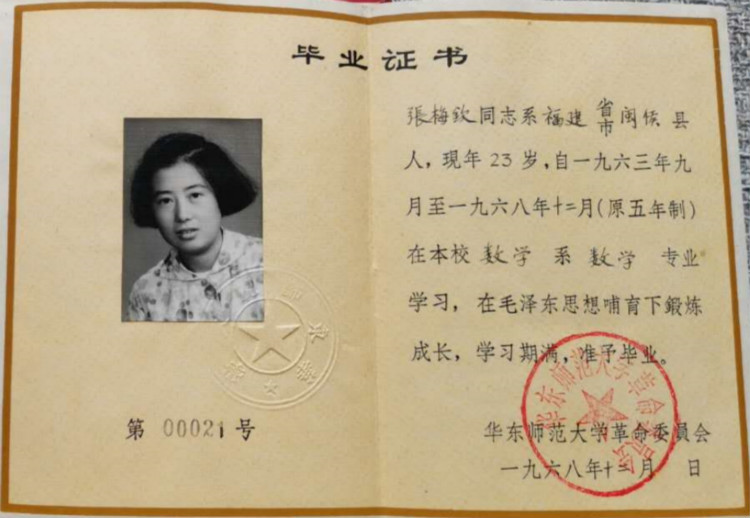 毕业证书
張梅欽同志系福建省市闽侯县
人，现年23岁，自一九六三年九
月至一九六八年十二月(原五年制)
在本校数学系数学专业
学习，在毛泽东思想哺育下鍛炼
成长，学习期满，准予毕业。
华东师范大学革命委员会
一九六八年十二月 日
华东师范大学革命委员会
第 00021 号